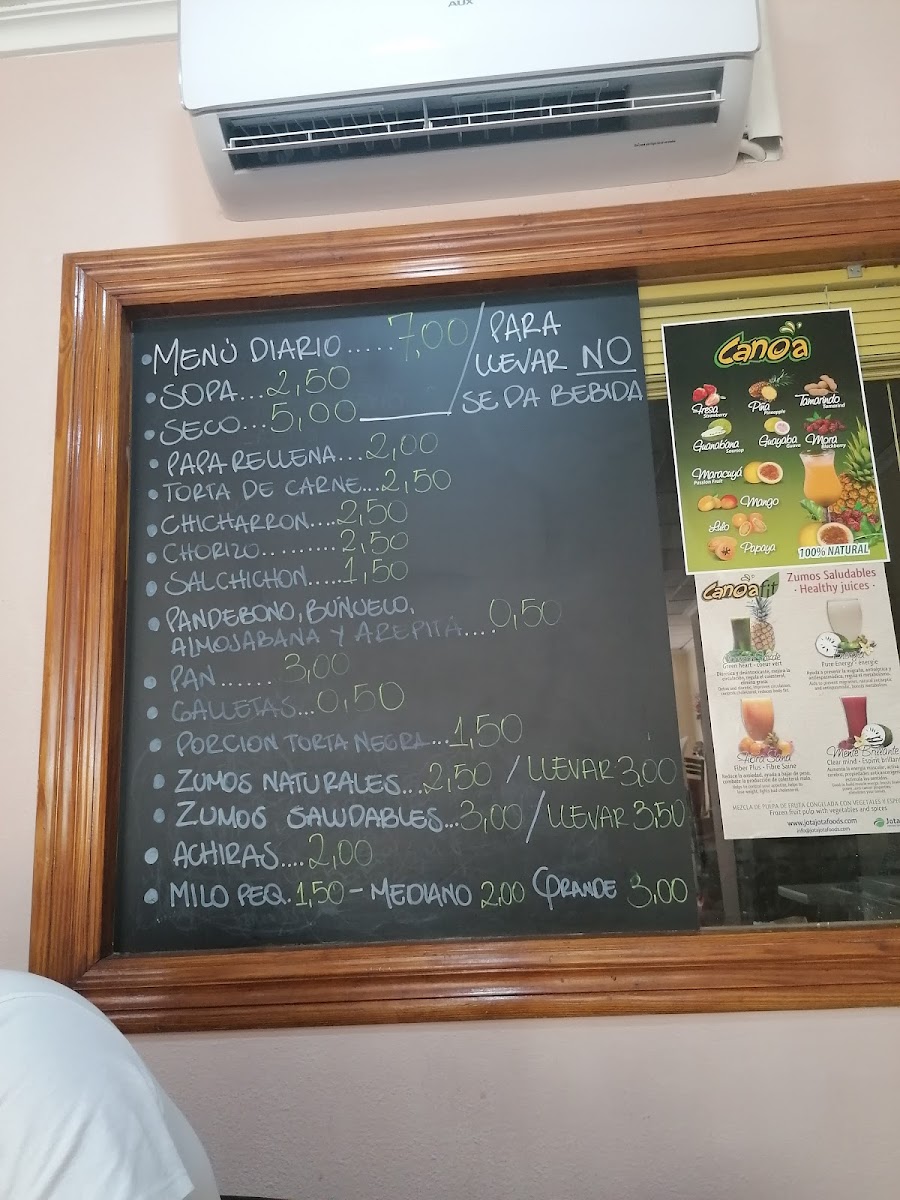 AUX
• MENÚ DIARIO......7,00 / PARA
LLEVAR NO
SE DA BEBIDA
• SOPA...2,50
• SECO...5,00
• PAPA RELLENA...2,00
• TORTA DE CARNE...2,50
• CHICHARRON....2,50
• CHORIZO..........2,50
• SALCHICHON.....1,50
• PANDEBONO, BUÑUELO,
ALMOJABANA Y AREPITA....0,50
• PAN....... 3,00
• GALLETAS...0,50
• PORCION TORTA NEGRA...1,50
• ZUMOS NATURALES....2,50 / LLEVAR 3,00
• ZUMOS SALUDABLES...3,00 / LLEVAR 3,50
• ACHIRAS....2,00
• MILO PEQ. 1,50 - MEDIANO 2,00 GRANDE 3,00
Canoa
Fresa
Strawberry
Piña
Pineapple
Tamarindo
Tamarind
Guanabana
Soursop
Guayaba
Guava
Mora
Blackberry
Maracuyá
Passion Fruit
Mango
Lulo
Papaya
100% NATURAL
Canoafit
Zumos Saludables
· Healthy juices ·
Green heart - coeur vert
Pure Energy - énergie
Fibra Sana
Fiber Plus - Fibre Saine
Mente Brillante
Clear mind - Esprit brillant
MEZCLA DE PULPA DE FRUTA CONGELADA CON VEGETALES Y
Frozen fruit pulp with vegetables and spices
www.jotajotafoods.com
info@jotajotafoods.com
Jota